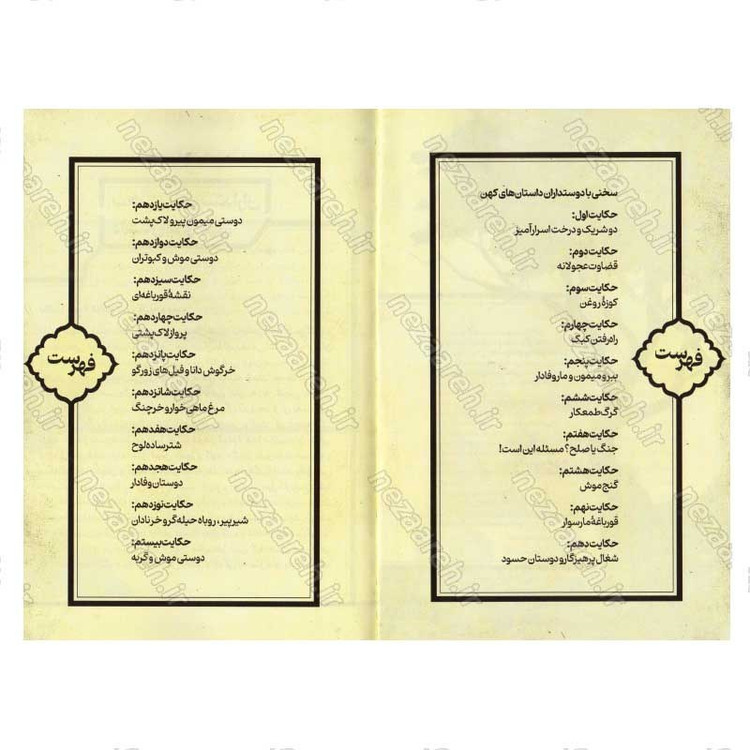 فهرست
سخنی با دوستداران داستان‌های کهن
حکایت اول:
دو شریک و درخت اسرارآمیز
حکایت دوم:
قضاوت عجولانه
حکایت سوم:
کوزهٔ روغن
حکایت چهارم:
راه رفتن کبک
حکایت پنجم:
ببر و میمون و مار وفادار
حکایت ششم:
گرگ طمعکار
حکایت هفتم:
جنگ یا صلح؟ مسئله این است!
حکایت هشتم:
گنج موش
حکایت نهم:
قورباغهٔ مارسوار
حکایت دهم:
شغال پرهیزگار و دوستان حسود
فهرست
حکایت یازدهم:
دوستی میمون پیر و لاک‌پشت
حکایت دوازدهم:
دوستی موش و کبوتران
حکایت سیزدهم:
نقشهٔ قورباغه‌ای
حکایت چهاردهم:
پرواز لاک‌پشتی
حکایت پانزدهم:
خرگوش دانا و فیل‌های زورگو
حکایت شانزدهم:
مرغ ماهی‌خوار و خرچنگ
حکایت هفدهم:
شتر ساده‌لوح
حکایت هجدهم:
دوستان وفادار
حکایت نوزدهم:
شیر پیر، روباه حیله‌گر و خر نادان
حکایت بیستم:
دوستی موش و گربه
nezaareh.ir